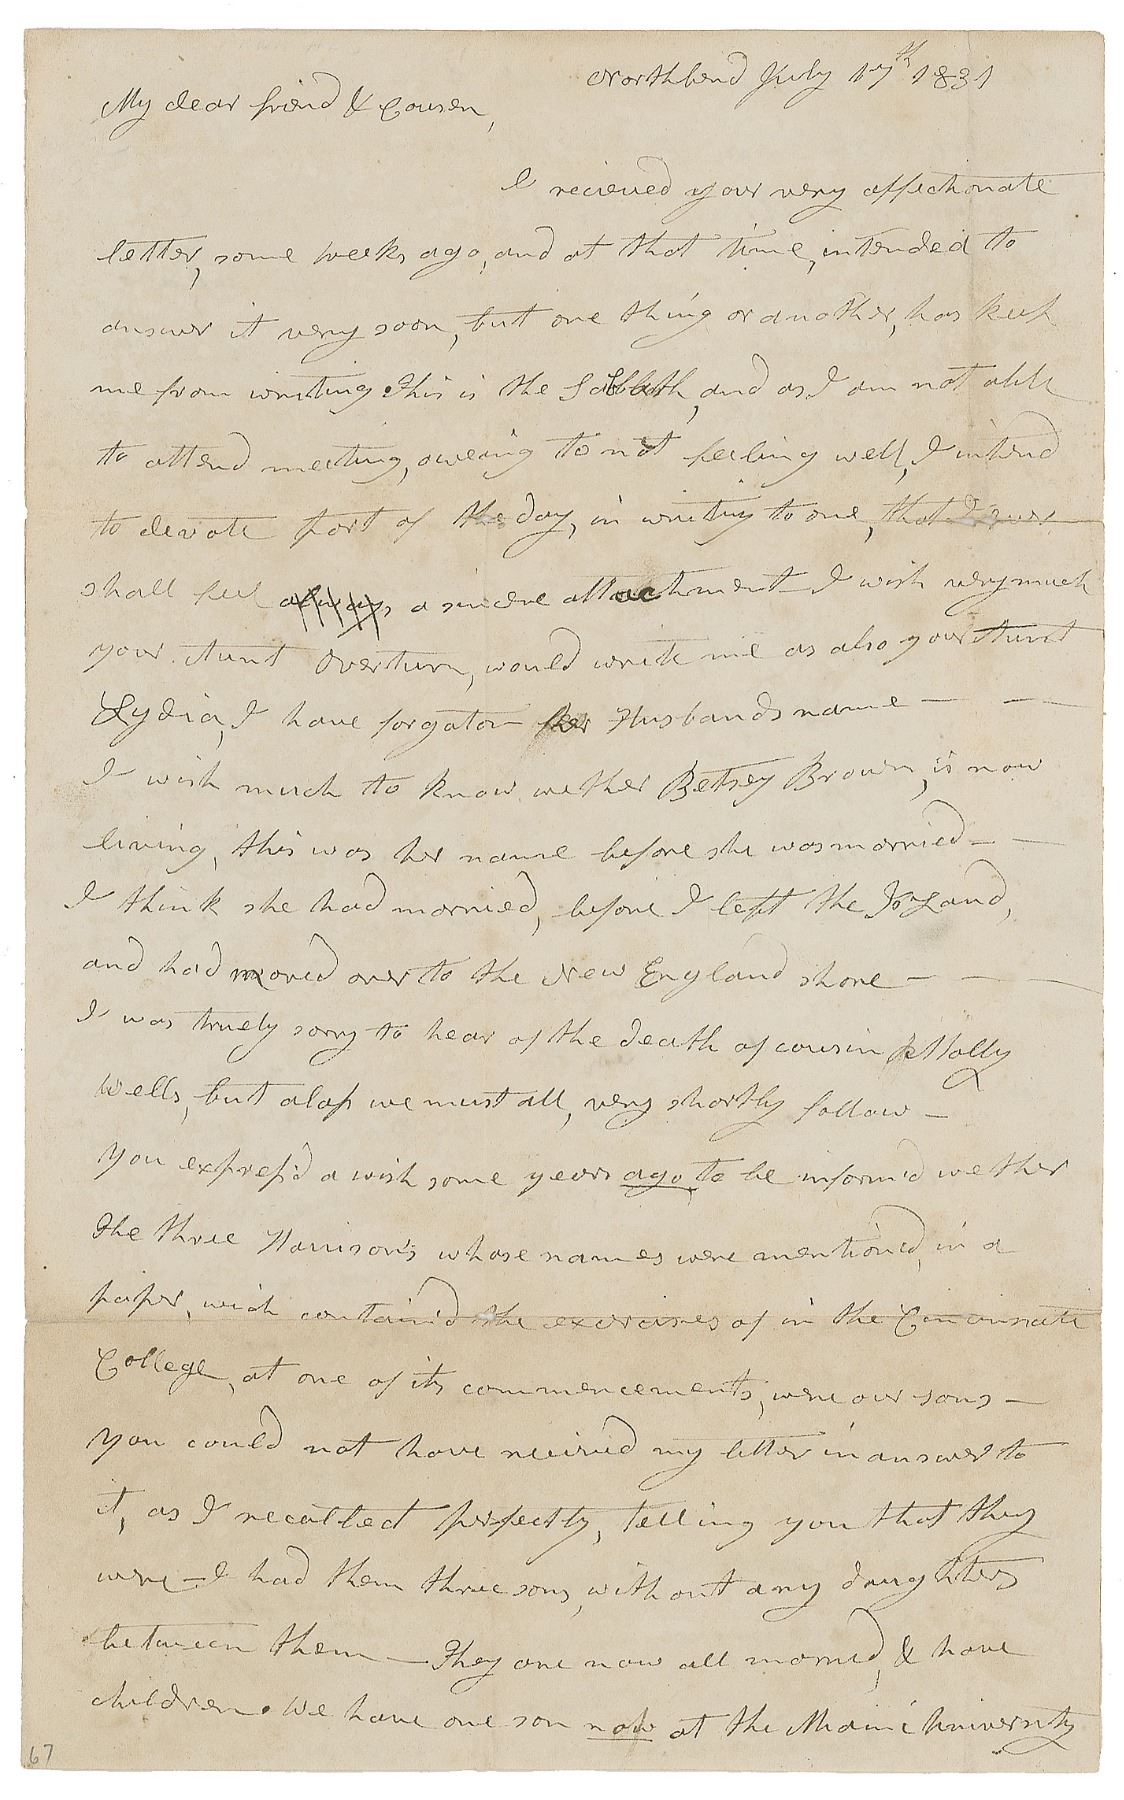 Northbend July 17th 1831
My dear friend & Cousen,
I recieved your very affectionate
letter, some weeks ago, and at that time, intended to
answer it very soon, but one thing or another, has kept
me from writing. This is the Sabbath, and as I am not able
to attend meeting, oweing to not feeling well, I intend
to devote part of the day, in writing to one, that I ever
shall feel always a sincere attachment I wish very much
your Aunt Overturn, would write me as also your Aunt
Lydia, I have forgaton her Husbands name — —
I wish much to know wether Betsey Brown, is now
living, this was her name before she was married — —
I think she had married, before I left the Island,
and had moved over to the New England shore — —
I was truely sorry to hear of the death of cousin Molly
Wells, but alass we must all, very shortly follow —
You express'd a wish some years ago, to be inform'd wether
the three Harrison's whose names were mention'd, in a
paper, wich contain'd the exercises of in the Cincinnati
College, at one of its commencements, were our sons —
You could not have reciev'd my letter in answer to
it, as I recollect perfectly, telling you that they
were — I had them three sons, without any daughters
between them — They are now all married, & have
children. We have one son now at the Miami University
67